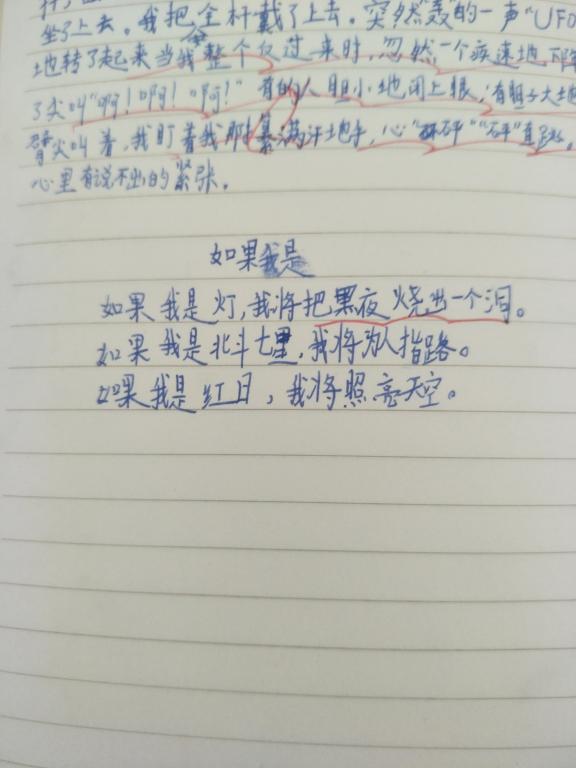 坐了上去。我把全杆戴了上去。突然"轰"的一声"UFO
地转了起来当我整个仪过来时,忽然一个疾速地
了尖叫"啊!啊!啊!"有的人胆小地闭上眼,有胆子大地
尖叫着,我盯着我那满汗地手,心"砰砰""砰"直
心里有说不出的紧张。
如果我是
如果我是灯,我将把黑夜烧出一个洞。
如果我是北斗七星,我将为人指路。
如果我是红日,我将照亮天空。